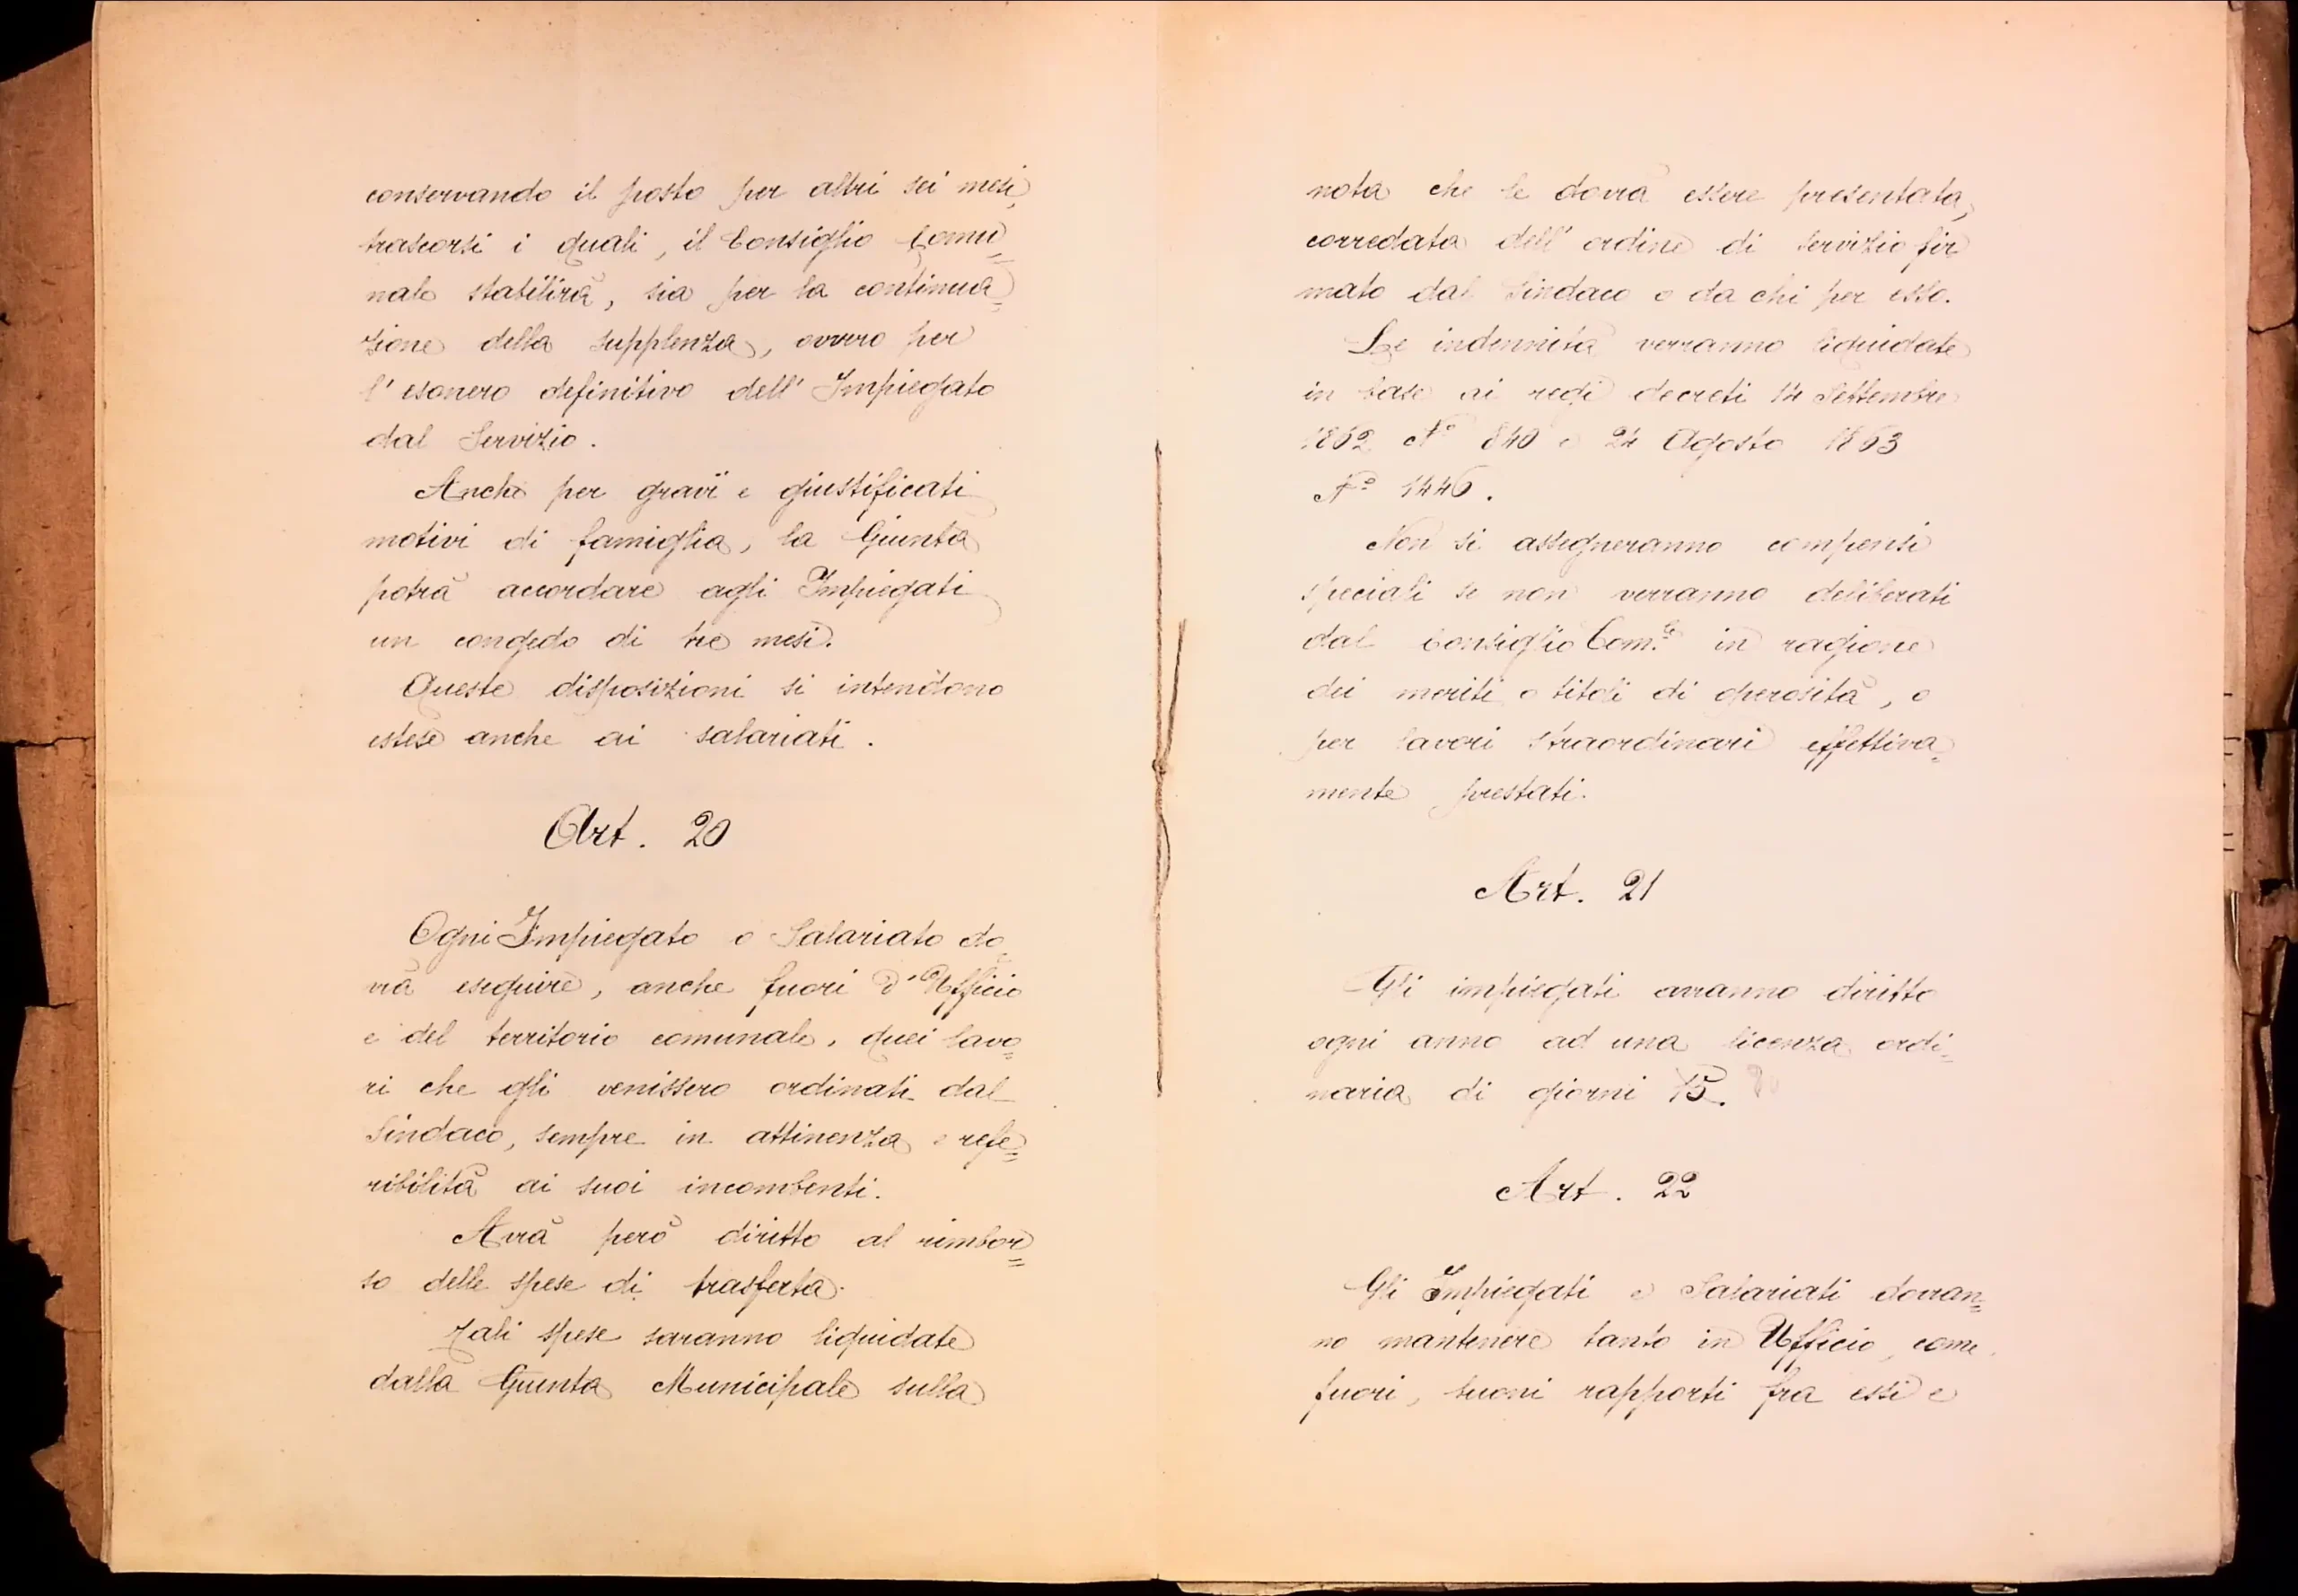 conservando il posto per altri sei mesi,
trascorsi i quali, il Consiglio Comu=
nale stabilirà, sia per la continua=
zione della supplenza, ovvero per
l'esonero definitivo dell'Impiegato
dal Servizio.
Anche per gravi e giustificati
motivi di famiglia, la Giunta
potrà accordare agli Impiegati
un congedo di tre mesi.
Queste disposizioni si intendono
estese anche ai salariati.
Art. 20
Ogni Impiegato o Salariato do=
vrà eseguire, anche fuori d'Ufficio
e del territorio comunale, quei lavo=
ri che gli venissero ordinati dal
Sindaco, sempre in attinenza e refe=
ribilità ai suoi incombenti.
Avrà però diritto al rimbor=
so delle spese di trasferta.
Tali spese saranno liquidate
dalla Giunta Municipale sulla
nota che le dovrà essere presentata,
corredata dell'ordine di servizio fir
mato dal Sindaco o da chi per esso.
Le indennità verranno liquidate
in base ai regi decreti 14 Settembre
1862 N° 840 e 24 Agosto 1863
N° 1446.
Non si assegneranno compensi
speciali se non verranno deliberati
dal Consiglio Com.le in ragione
dei meriti o titoli di operosità, o
per lavori straordinari effettiva=
mente prestati.
Art. 21
Gli impiegati avranno diritto
ogni anno ad una licenza ordi=
naria di giorni 15.
Art. 22
Gli Impiegati e Salariati dovran=
no mantenere tanto in Ufficio, come
fuori, buoni rapporti fra essi e